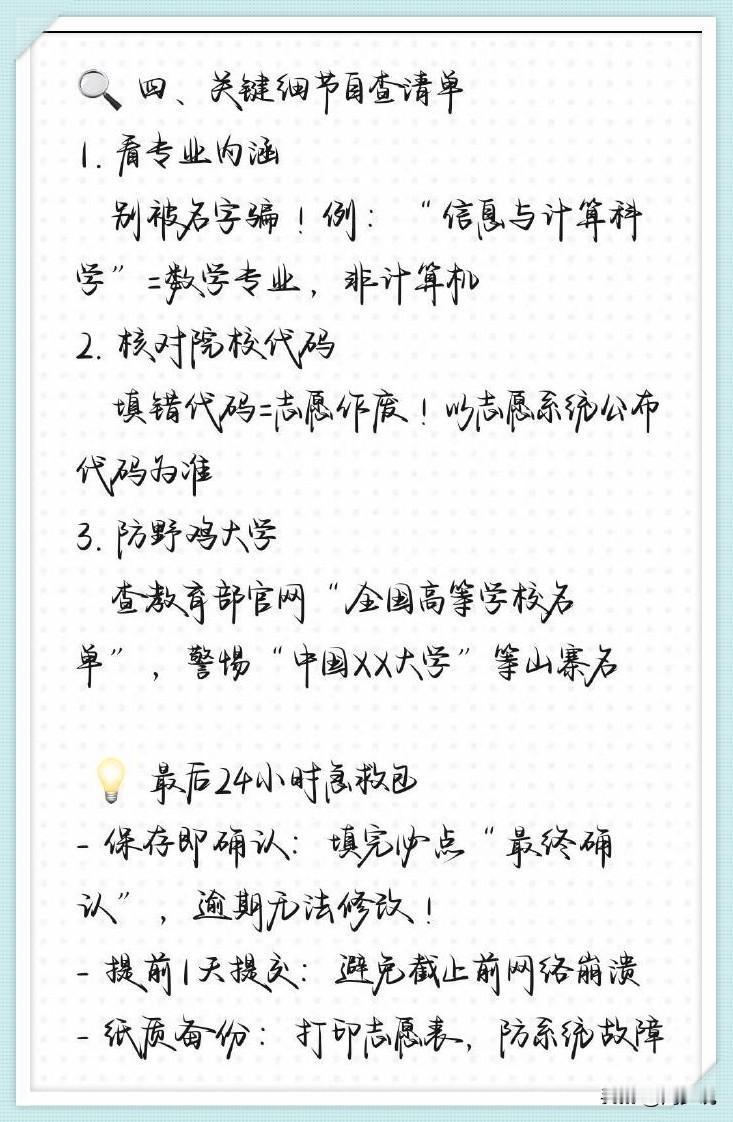 🔍 四、关键细节自查清单
1. 看专业内涵
别被名字骗！例：“信息与计算科
学”=数学专业，非计算机
2. 核对院校代码
填错代码=志愿作废！以志愿系统公布
代码为准
3. 防野鸡大学
查教育部官网“全国高等学校名
单”，警惕“中国XX大学”等山寨名
💡 最后24小时急救包
- 保存即确认：填完必点“最终确
认”，逾期无法修改！
- 提前1天提交：避免截止前网络崩溃
- 纸质备份：打印志愿表，防系统故障